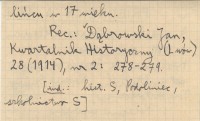 lińcu w 17 wieku.
Rec.: Dąbrowski Jan,
Kwartalnik Historyczny (Lwów)
28 (1914), nr 2: 278-279.
[ind.: hist. S, Podoliniec,
szkolnictwo S]